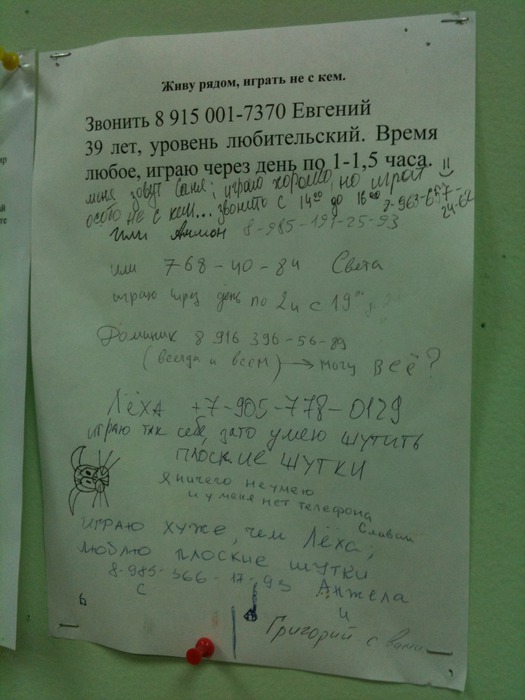 Живу рядом, играть не с кем.
Звонить 8 915 001-7370 Евгений
39 лет, уровень любительский. Время
любое, играю через день по 1-1,5 часа.
меня зовут Саня; играю хорошо, но играть
особо не с кем... звонить с 14 00 до 16 00 8-963-657-
24-62
Или Антон 8-985-191-25-93
или 768-40-84 Света
играю через день по 2ч с 19 00
Доминик 8 916 396-56-89
(всегда и всем) → могу всё?
Лёха +7-905-778-0129
играю так себе, зато умею шутить
плоские шутки
Я ничего не умею
и у меня нет телефона
Славик
играю хуже, чем Лёха;
люблю плоские шутки
8-985-366-17-93 Анжела
с и
6
Григорий с вами